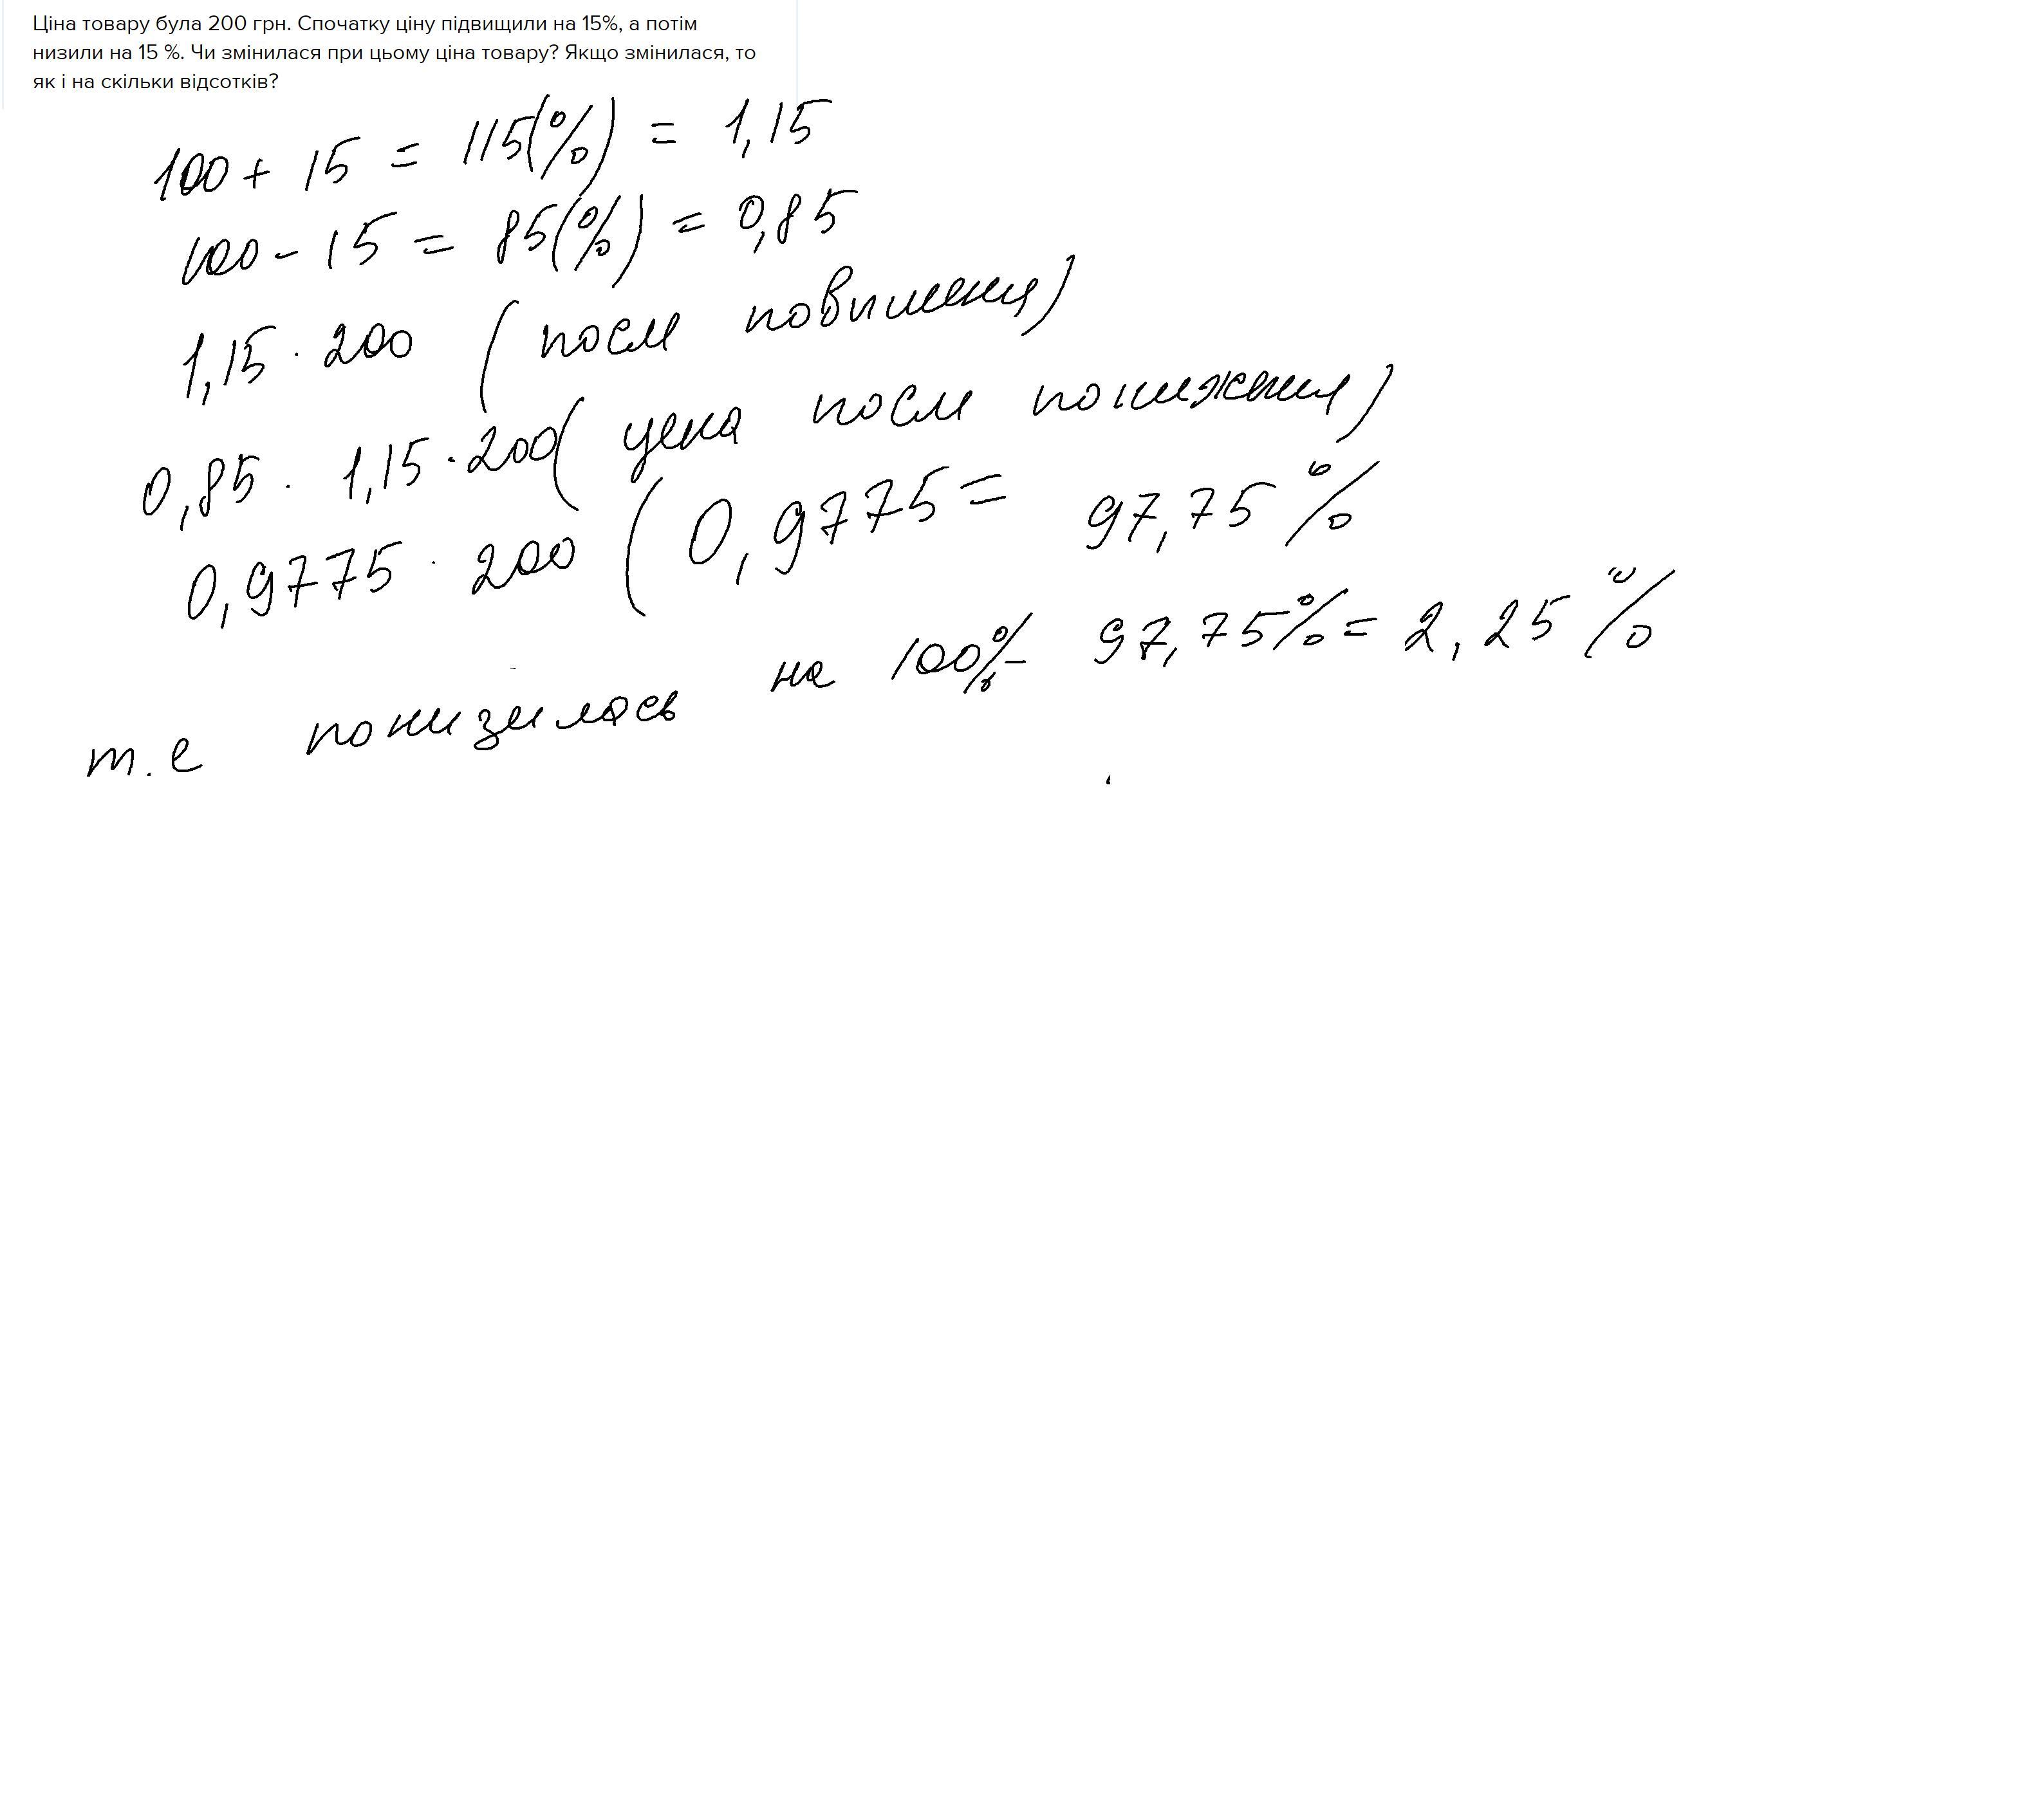 Ціна товару була 200 грн. Спочатку ціну підвищили на 15%, а потім
низили на 15 %. Чи змінилася при цьому ціна товару? Якщо змінилася, то
як і на скільки відсотків?
100 + 15 = 115(%) = 1,15
100 - 15 = 85(%) = 0,85
1,15 · 200 (после повышения)
0,85 · 1,15 · 200 (цена после понижения)
0,9775 · 200 (0,9775 = 97,75%
т.е понизилась на 100% - 97,75% = 2,25%